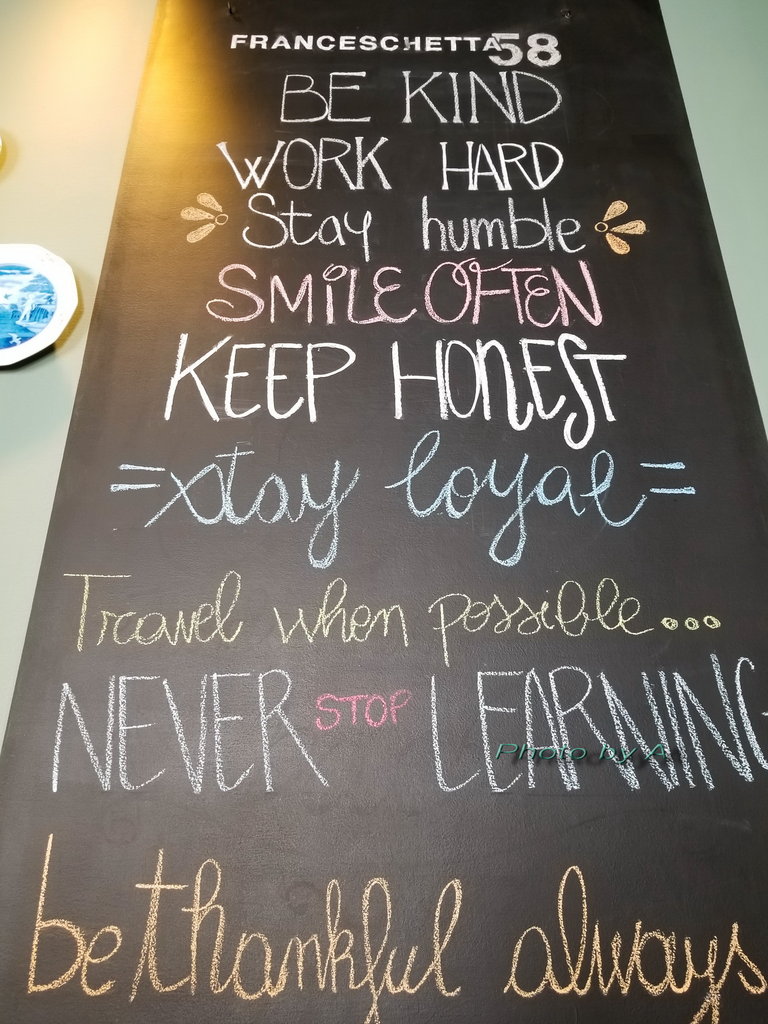 FRANCESCHETTA58
BE KIND
WORK HARD
Stay humble
SMiLE OFTEN
KEEP HONEST
=stay loyal=
Travel when possible...
NEVER STOP LEARNING
Photo by A.
be thankful always